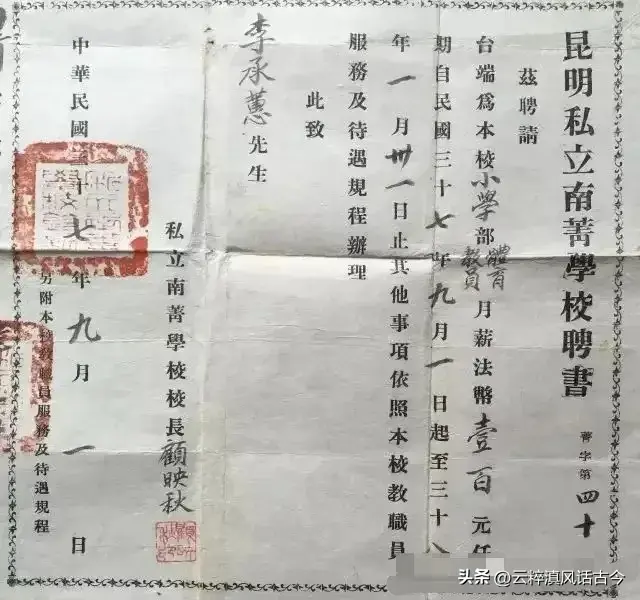 昆明私立南菁學校聘書
菁字第四十
茲聘請
台端爲本校小學部體育教員月薪法幣壹百元任
期自民國三十七年九月一日起至三十八
年一月卅一日止其他事項依照本校教職員
服務及待遇規程辦理
此致
李承蕙先生
私立南菁學校校長顧映秋
中華民國三十七年九月一日
另附本校教職員服務及待遇規程
头条 @云梓滇风话古今